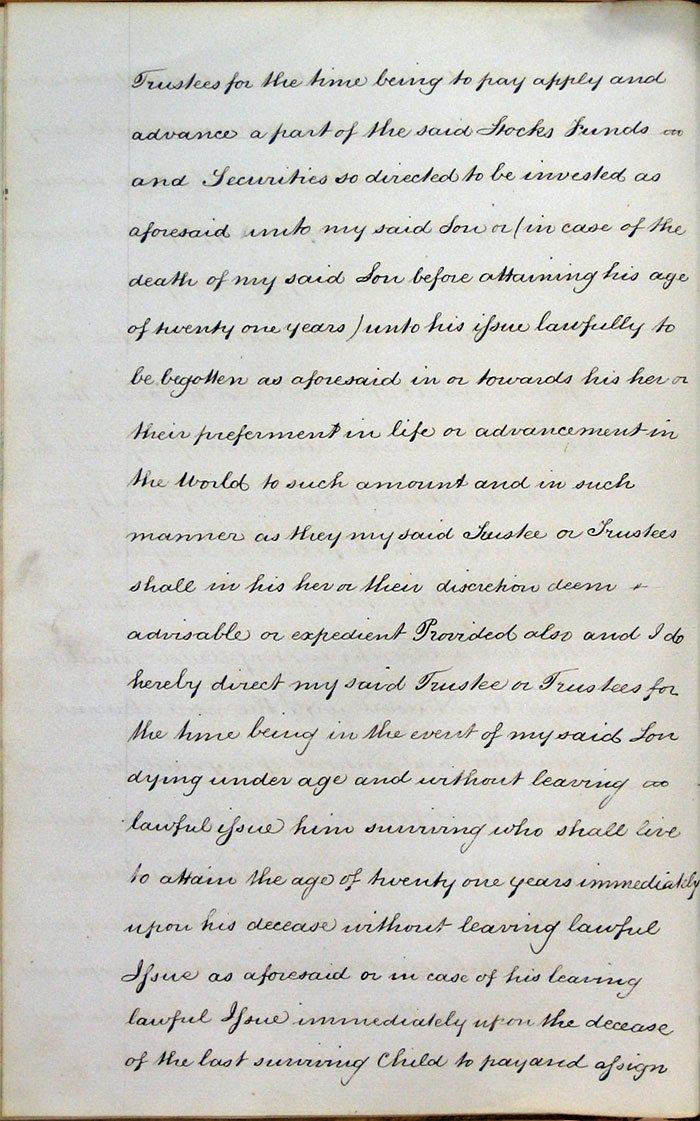 Trustees for the time being to pay apply and
advance a part of the said Stocks Funds
and Securities so directed to be invested as
aforesaid unto my said Son or (in case of the
death of my said Son before attaining his age
of twenty one years) unto his issue lawfully to
be begotten as aforesaid in or towards his her or
their preferment in life or advancement in
the World to such amount and in such
manner as they my said Trustee or Trustees
shall in his her or their discretion deem
advisable or expedient Provided also and I do
hereby direct my said Trustee or Trustees for
the time being in the event of my said Son
dying under age and without leaving
lawful issue him surviving who shall live
to attain the age of twenty one years immediately
upon his decease without leaving lawful
Issue as aforesaid or in case of his leaving
lawful Issue immediately upon the decease
of the last surviving Child to pay and assign